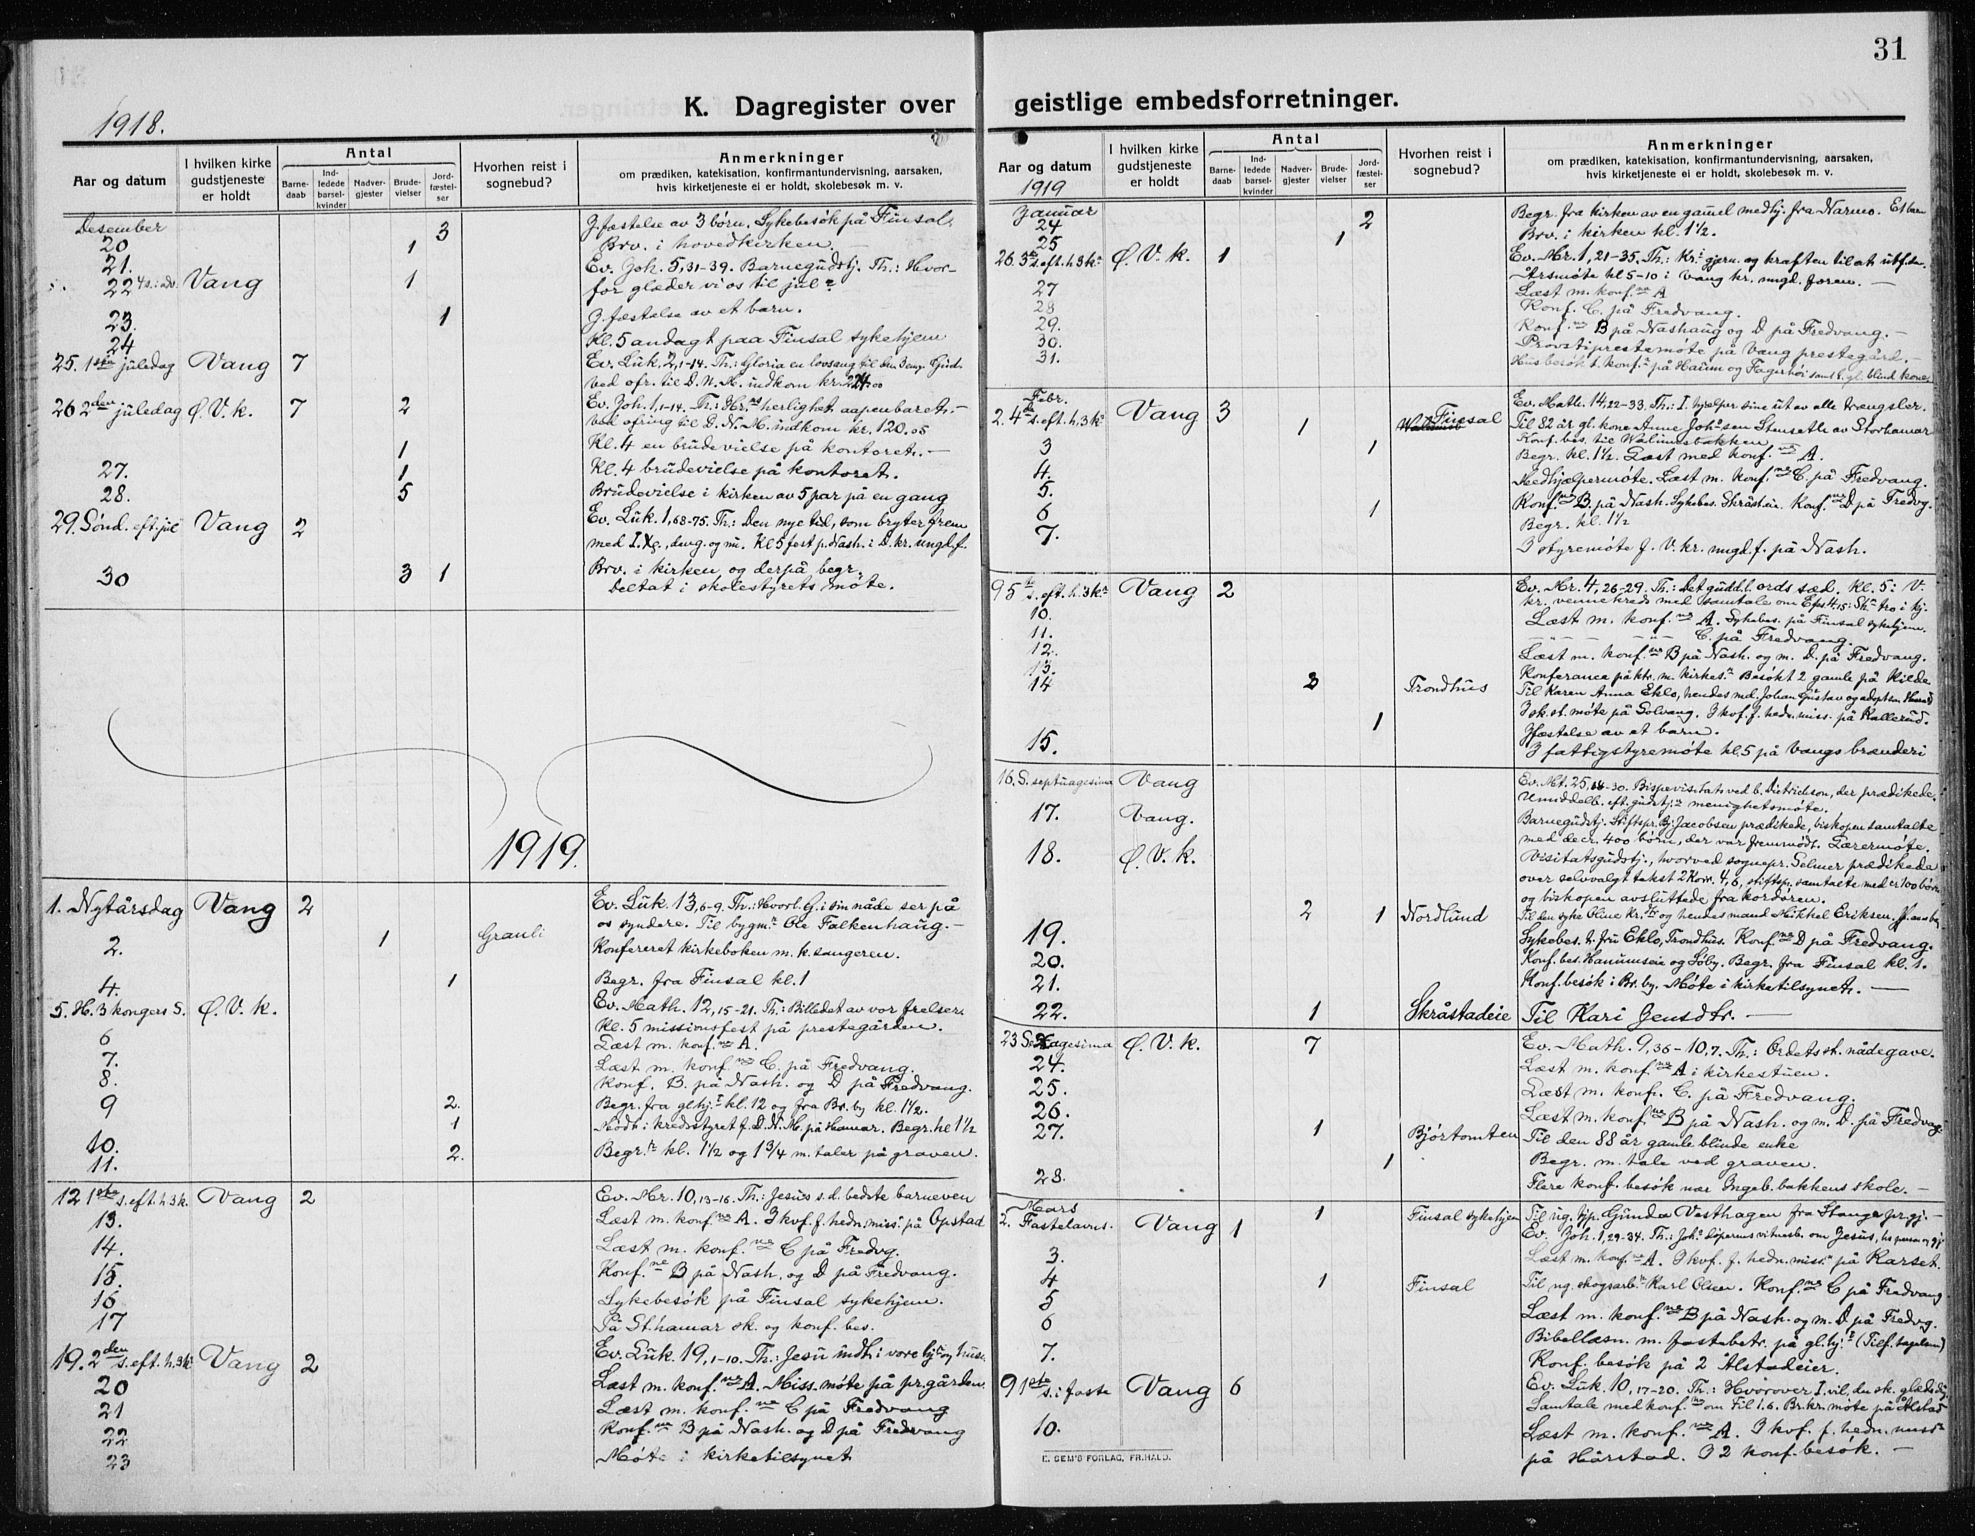 31
K. Dagregister over geistlige embedsforretninger.
1918.
Aar og datum
I hvilken kirke gudstjeneste er holdt
Antal
Barnedaab
Indledede barselkvinder
Nadvergjester
Brudevielser
Jordfæstelser
Hvorhen reist i sognebud?
Anmerkninger
om prædiken, katekisation, konfirmantundervisning, aarsaken,
hvis kirketjeneste ei er holdt, skolebesøk m. v.
Desember
20 3 J.fæstelse av 3 börn. Sykebesök på Finsal.
21. 1 Brv. i hovedkirken.
22 4 s. i adv. Vang 1 Ev. Joh. 5,31-39. Barnegudstj. Th.: Hvor-
for glæder vi os til jul?
23. 1 J.fæstelse av et barn.
24 Kl. 5 andagt paa Finsal sykehjem
25. 1ste juledag Vang 7 Ev. Luk. 2,1-14. Th.: Gloria en lovsang til
ved ofr. til D. N. M. indkom kr.
26 2den juledag Ø. V. k. 7 2 Ev. Joh. 1,1-14. Th.: herlighet aapenbaret.
ved ofring til D. N. M. indkom kr. 120.05
1 Kl. 4 en brudevielse på kontoret.
27. 1 Kl. 4 brudevielse på kontoret.
28. 5 Brudevielse i kirken av 5 par på en gang
29. Sönd. eft. jul Vang 2 Ev. Luk. 1,68-75. Th.: Den nye tid, som bryter frem
med I. Xs. Kl 5 fest p. Nash. i D. kr. ungd.f.
30 3 1 Brv. i kirken og derpå begr.
Deltat i skolestyrets möte.
1919.
1. Nytårsdag Vang 2 Ev. Luk. 13,6-9. Th.: Hvorl. G. i sin nåde ser på
os syndere. Til bygm. Ole Falkenhaug.
2. 1 Grauli Konfereret kirkeboken m. k. sangeren.
4. 1 Begr. fra Finsal kl. 1
5. H. 3 kongers S. Ø. V. k. Ev. Math. 12,15-21. Th.: Billedet av vor frelser.
Kl. 5 missionsfest på prestegården.
6 Læst m. konf.ne A.
7. Læst m. konf.ne C. på Fredvang.
8. Konf. B. på Nash. og D på Fredvang.
9 2. Begr. fra glhj. kl. 12 og fra Br. by kl. 1½.
10. 1 Mödt i kredsstyret f. D. N. M. på Hamar. Begr. kl 1½
11. 2. Begr. kl. 1½ og 1¾ m. taler på graven.
12 1ste s. eft. h. 3 k. Vang 2 Ev. Mr. 10,13-16. Th.: Jesus s. d. bedste barneven
13. Læst m. konf.ne A. I kvf. f. hedn. miss. på Opstad
14. Læst m. konf.ne C på Fredvg.
15 Konf.ne B på Nash. og D på Fredvang.
16 Sykebesök på Finsal sykehjem.
17 På St.hamar sk. og konf. bes.
19. 2den s. eft. h. 3 k. Vang 2 Ev. Luk. 19,1-10. Th.: Jesu indt. i vore hj. og huse.
20 Læst m. konf.ne A. Miss. möte på pr.gården.
21 Læst m. konf.ne C på Fredvang
22 Konf.ne B på Nash. og D på Fredvang
23 Möte i kirketilsynet
Aar og datum
1919
I hvilken kirke gudstjeneste er holdt
Antal
Barnedaab
Indledede barselkvinder
Nadvergjester
Brudevielser
Jordfæstelser
Hvorhen reist i sognebud?
Anmerkninger
om prædiken, katekisation, konfirmantundervisning, aarsaken,
hvis kirketjeneste ei er holdt, skolebesøk m. v.
Januar
24 2 Begr. fra kirken av en gamel medhj. fra Narmo. Et barn
25 1 Brv. i kirken kl. 1½.
26. 3 s. eft. h. 3 k. Ø. V. k. 1 Ev. Mr. 1,21-35. Th.: Kr. gjern. og kraften til at
Årsmöte kl 5-10 i Vang kr. ungd. foren.
27 Læst m. konf.ne A
28 Konf. C. på Fredvang.
29. Konf.ne B på Nashaug og D på Fredvang.
30. Provstiprestemöte på Vang prestegård.
31. Husbesök t. konf. på Haum og Fagerhöi samt t. gl. blind kone.
Febr.
2. 4de s. eft. h. 3 k. Vang 3 Ev. Math. 14,22-33. Th.: I. hjælper sine ut av alle trængsler.
1 Finsal Til 82 år gl. kone Anne Joh.sen Stenseth av Storhamar
Konf. bes. til Walumsbakken
3 1 Begr. kl. 1½. Læst med konf.ne A.
4. Medhjælpermöte. Læst m. konf.ne C. på Fredvang.
5. Konf.ne B. på Nash. Sykebes. Skråstein. Konf.ne D på Fredvg.
6 1 Begr. kl. 1½
7. I styremöte f. V. kr. ungd.f. på Nash.
9 5te s. eft. h. 3 k. Vang 2 Ev. Mr. 4,26-29. Th.: Det gudd.l. ords sæd. Kl. 5: V.
kr. vennekreds med samtale om Efes. 4,15:
10. Læst m. konf.ne A. Sykebes. på Finsal sykehjem.
11. C. på Fredvang.
12. Læst m. konf.ne B på Nash. og m. D. på Fredvang.
13. Konferance på ktr. m. kirkes. Besökt 2 gamle på Kilde
14 3 Trondhus Til Karen Anna Eklo, hendes md. Johan Gustav og adoptsn. Harald
I sk. st. möte på Solvang. I kvf. f. hedn. miss. på Kallerud.
15. 1 Jfæstelse av et barn.
I fattigstyremöte kl. 5 på Vangs brænderi
16. S. septuagesima Vang Ev. Mt. 25,14-30. Bispevisitats ved b. Dietrichson, der prædikede.
Umiddelb. eft. gudstj. menighetsmöte.
17. Vang. Barnegudstj. Stiftspr. Bj. Jacobsen prædikede, biskopen samtalte
med de cr. 400 börn, der var fremmödt. Lærermöte.
18. Ø. V. k. Visitatsgudstj., hvorved sognepr. Selmer prædikede
over selvvalgt tekst 2 Kor. 4,6, stiftspr. samtalte med cr 100 börn
og biskopen avsluttede fra kordören.
2 1 Nordlund Til den syke Oline Kr. og hendes mand Mikkel Eriksen.
19. Sykebes. t. fru Eklo, Trondhus. Konf.ne D på Fredvang.
20. Konf. bes. Hanumseie og Söby. Begr. fra Finsal kl. 1.
21. Konf. besök i Br. by. Möte i kirketilsynet.
22. 1 Skråstadeie Til Kari Jensdtr.
23 Sexagesima Ø. V. k. 7 Ev. Math. 9,36-10,7. Th.: Ordets st. nådegave.
24. Læst m. konf.ne A i kirkestuen.
25. Læst m. konf. C. på Fredvang.
26. Læst m. konf.ne B på Nash. og m. D. på Fredvag.
27. 1 Bjørtomten Til den 88 år gamle blinde enke
1 Begr. m. tale ved graven.
28. Flere konf. besök nær Ingeb.bakkens skole.
Mars
1 Finsal sykehjem Til ug. tjp. Gunda Vesthagen fra Stange pr.gj.
2. Fastelavns. Vang 1 Ev. Joh. 1,29-34. Th.: Joh. döperens vitnesb. om Jesus,
3. Læst m. konf.ne A. I kvf. f. hedn. miss. på Karset.
4 1 Finsal Til ug. skogsarb. Karl Olsen. Konf.ne C på Fredvang.
5 Læst m. konf.ne B på Nash. og m. D på Fredvg.
6 Bibellæsn. m. fastebetr. på gl.hj.
7. Konf. besök på 2 Alstadeier.
9 1ste s. i faste Vang 6 Ev. Luk. 10,17-20. Th.: Hvorover I. vil, du sk. glæde dig.
Samtale med konf. om Fil 1.6. Br. kr. möte på Alstad
10. Læst m. konf.ne A. I kvf. f. hedn. miss.
på Hårstad. I 2 konf. besök.
E. SEM'S FORLAG, FR.HALD.